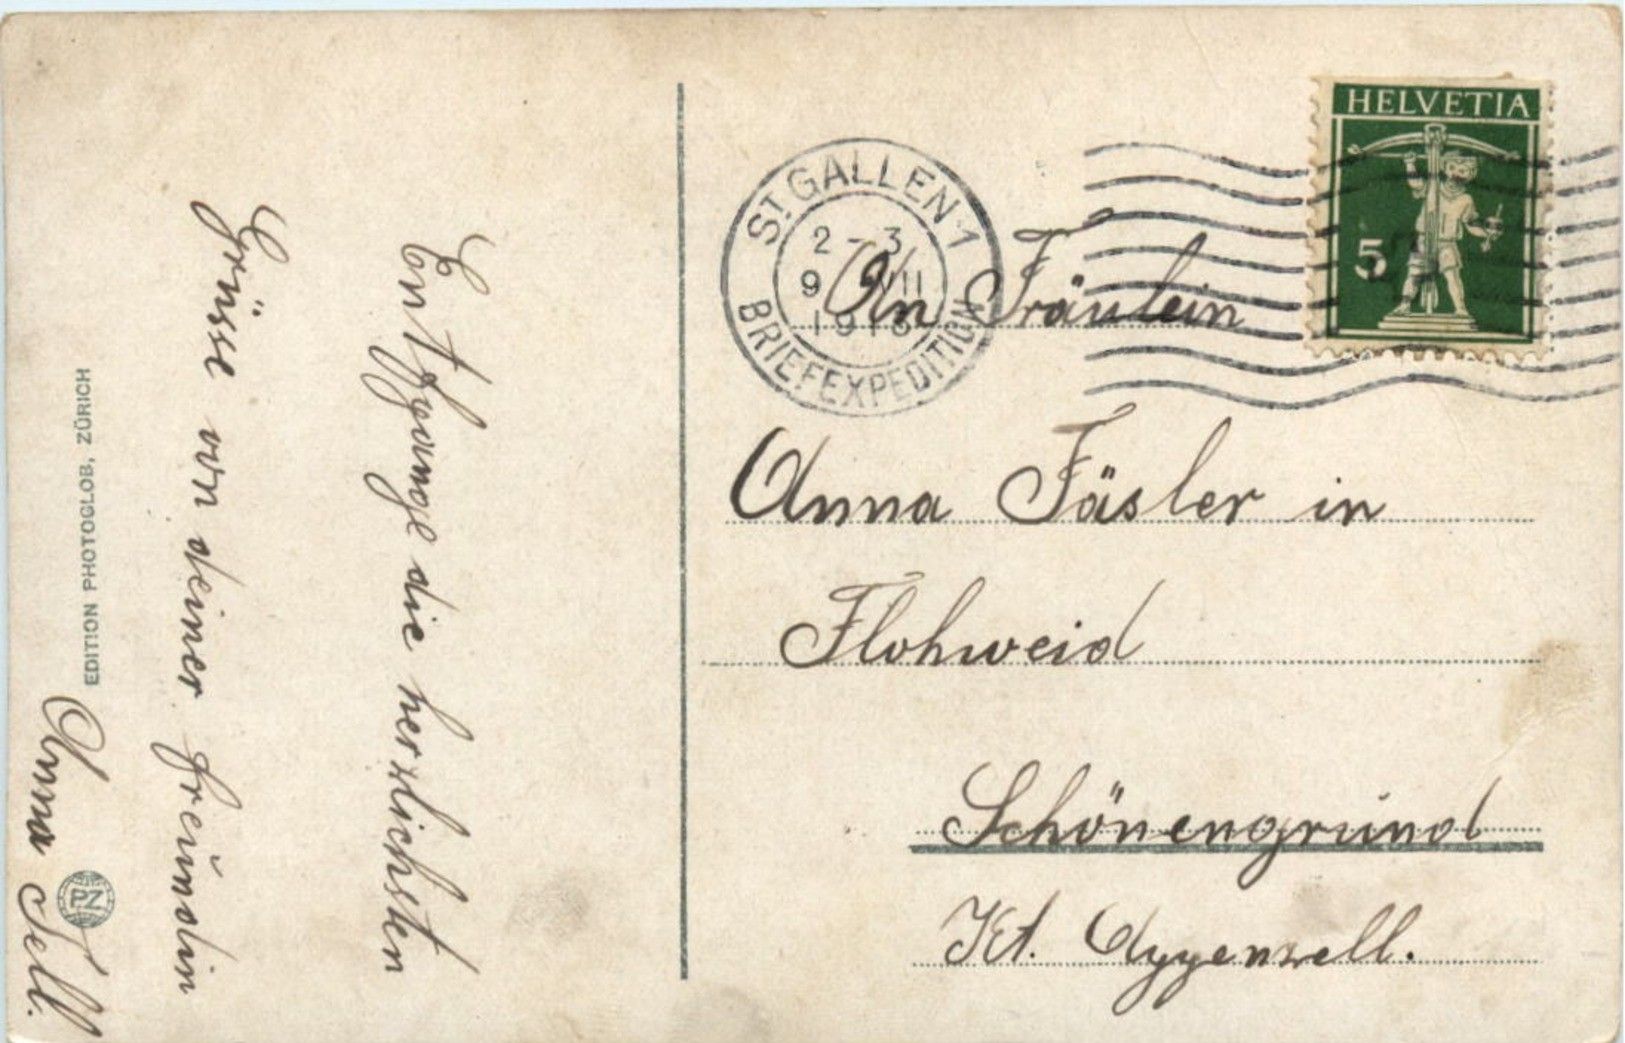 Entpfange die herzlichsten
Grüsse von deiner freŭndin
Anna Sell.
EDITION PHOTOGLOB, ZÜRICH
PZ
ST. GALLEN 1
2-3
9 VIII
BRIEFEXPEDITION
HELVETIA
5
An Fräulein
Anna Fäsler in
Flohweid
Schönengrund
Kt. Appenzell.